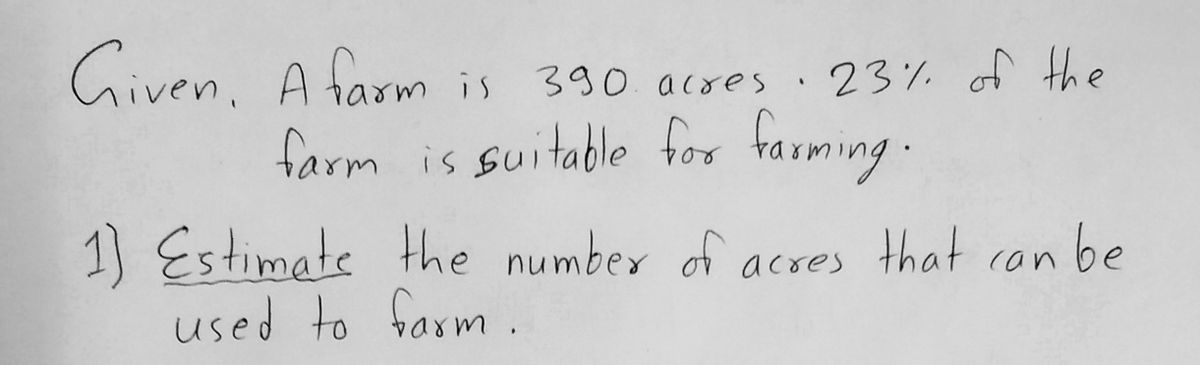 Given. A farm is 390 acres. 23% of the
farm is suitable for farming.
1) Estimate the number of acres that can be
used to farm.